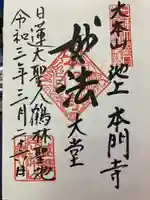 大本山 池上 本門寺
妙法
大堂
日蓮大聖人鶴林霊地
令和三年三月二十一日